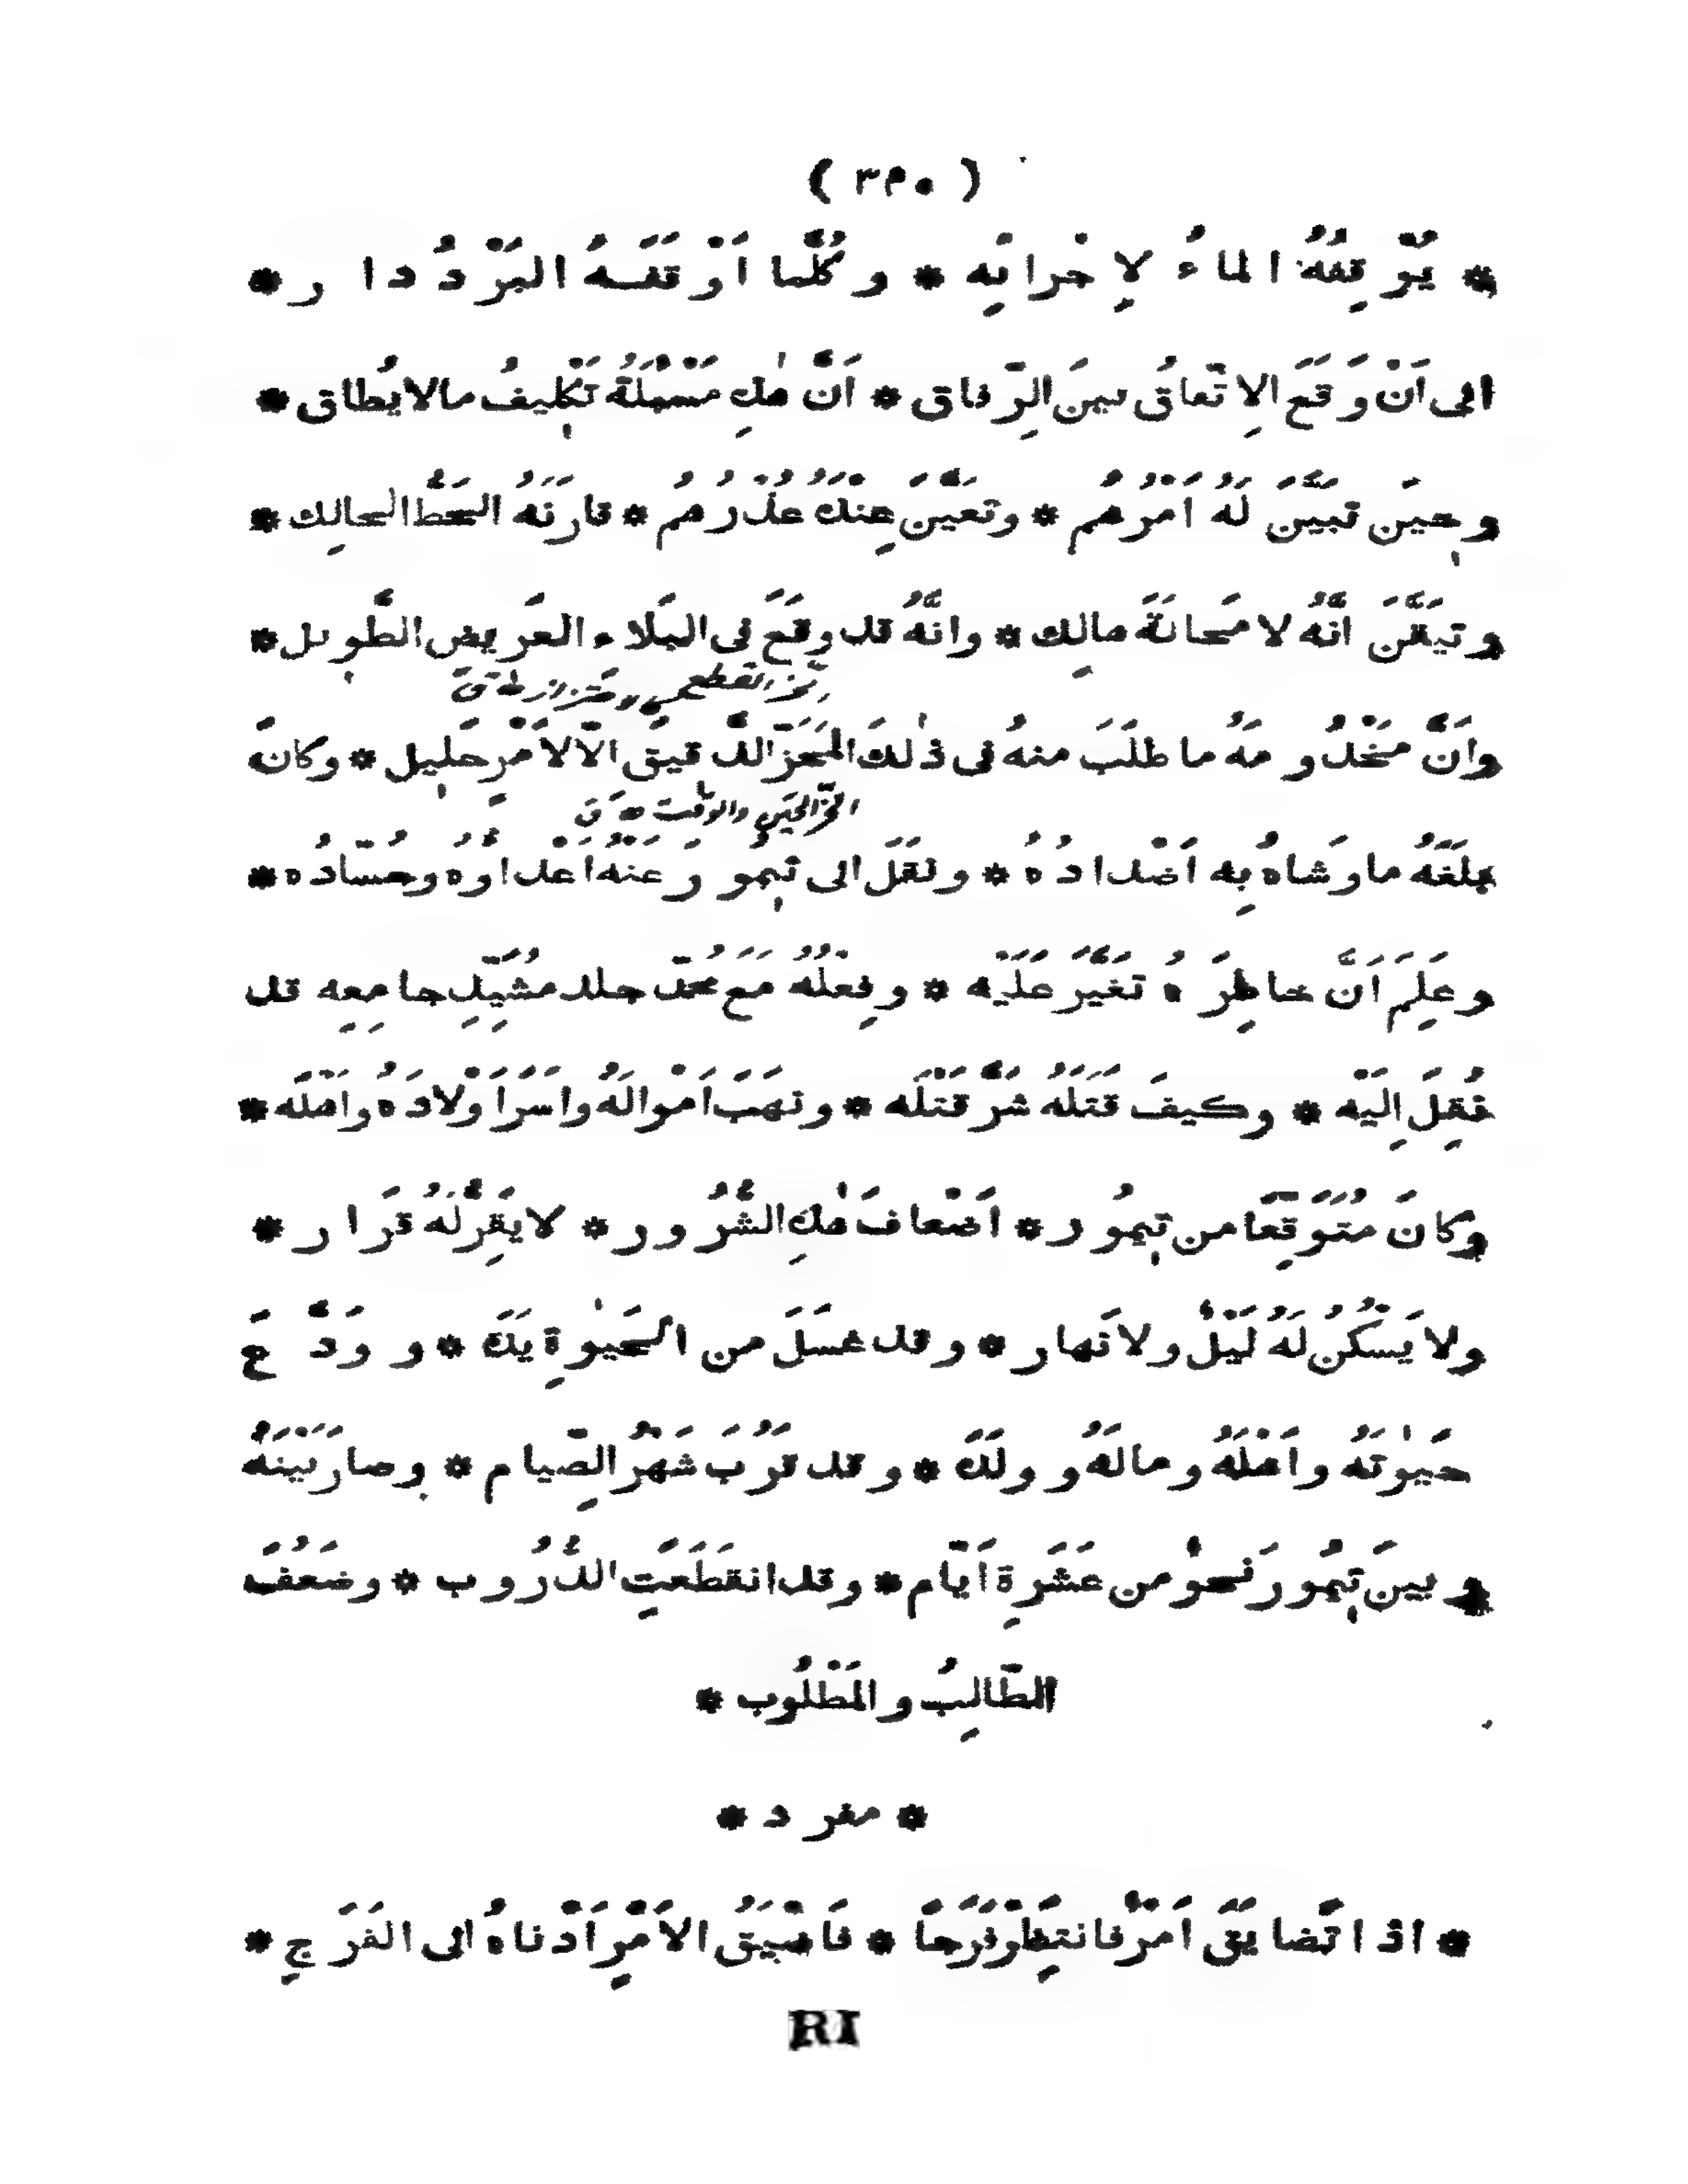 ( ٣٢٠ )
* يُوْقِفُهُ الماءُ لِاجْرائِه * وكُلَّما اَوْقَفَهُ البَرْدُ دار *
الى اَنْ وَقَعَ الاِتّفاقُ بينَ الرِّفاق * اَنَّ هٰذِه مَسْئَلَةُ تَكْلِيفُ مالايُطاق *
وحِينَ تبيَّنَ لَهُ اَمْرُهُم * وتعَيَّنَ عِنْدَهُ عُذْرُهُم * قارَنَهُ الحَظُّ الحالِك *
وتيقَّنَ انَّهُ لامَحالَةَ هالِك * وانَّهُ قد وقَعَ فى البَلاء العَريضِ الطَّوِيل *
واَنَّ مَخْدُومَهُ ما طلَبَ منهُ فى ذٰلكَ الحَزّ الدّقيقِ الّالاَمْرٍ جَلِيل * وكانَ
الحزّ الحين والوقت ق
بلَغَهُ ماوَشاهُ بِه اَضْدادُهُ * ونقَلَ الى تِيمُورَ عَنْهُ اَعْداوُهُ وحُسّادُه *
وعَلِمَ اَنَّ خاطِرَهُ تغَيَّرَ عَلَيْه * وفِعْلُهُ مَعَ مُحَمّد جلد مُشَيِّدِ جامِعِه قد
نُقِلَ اِلَيْه * وكيفَ قَتَلَهُ شَرَّ قَتْلَه * ونَهَبَ اَمْوالَهُ واَسَرَ اَوْلادَهُ واَهْلَه *
وكانَ مُتَوَقِّعًا من تِيمُور * اَضْعافَ هٰذِهِ الشُّرُور * لايَقِرُّلَهُ قَرار *
ولايَسْكُنُ لَهُ لَيْلٌ ولانَهار * وقد غسَلَ من الحَيٰوةِ يَدَهُ * ووَدَّعَ
حَيٰوتَهُ واَهْلَهُ ومالَهُ وولَدَهُ * وقد قَرُبَ شَهْرُ الصِّيام * وصارَ بَيْنَهُ
وبينَ تِيمُورَ نَحوٌ من عَشَرَةِ اَيّام * وقد انقَطَعَتِ الدُّرُوب * وضَعُفَ
الطّالِبُ والمَطْلُوب *
* مفرد *
* اذا تَضايَقَ اَمْرٌ فانتَظِرْ فَرَجاً * فَاَضْيَقُ الاَمْرِ اَدْناهُ الى الفَرَجِ *
RI